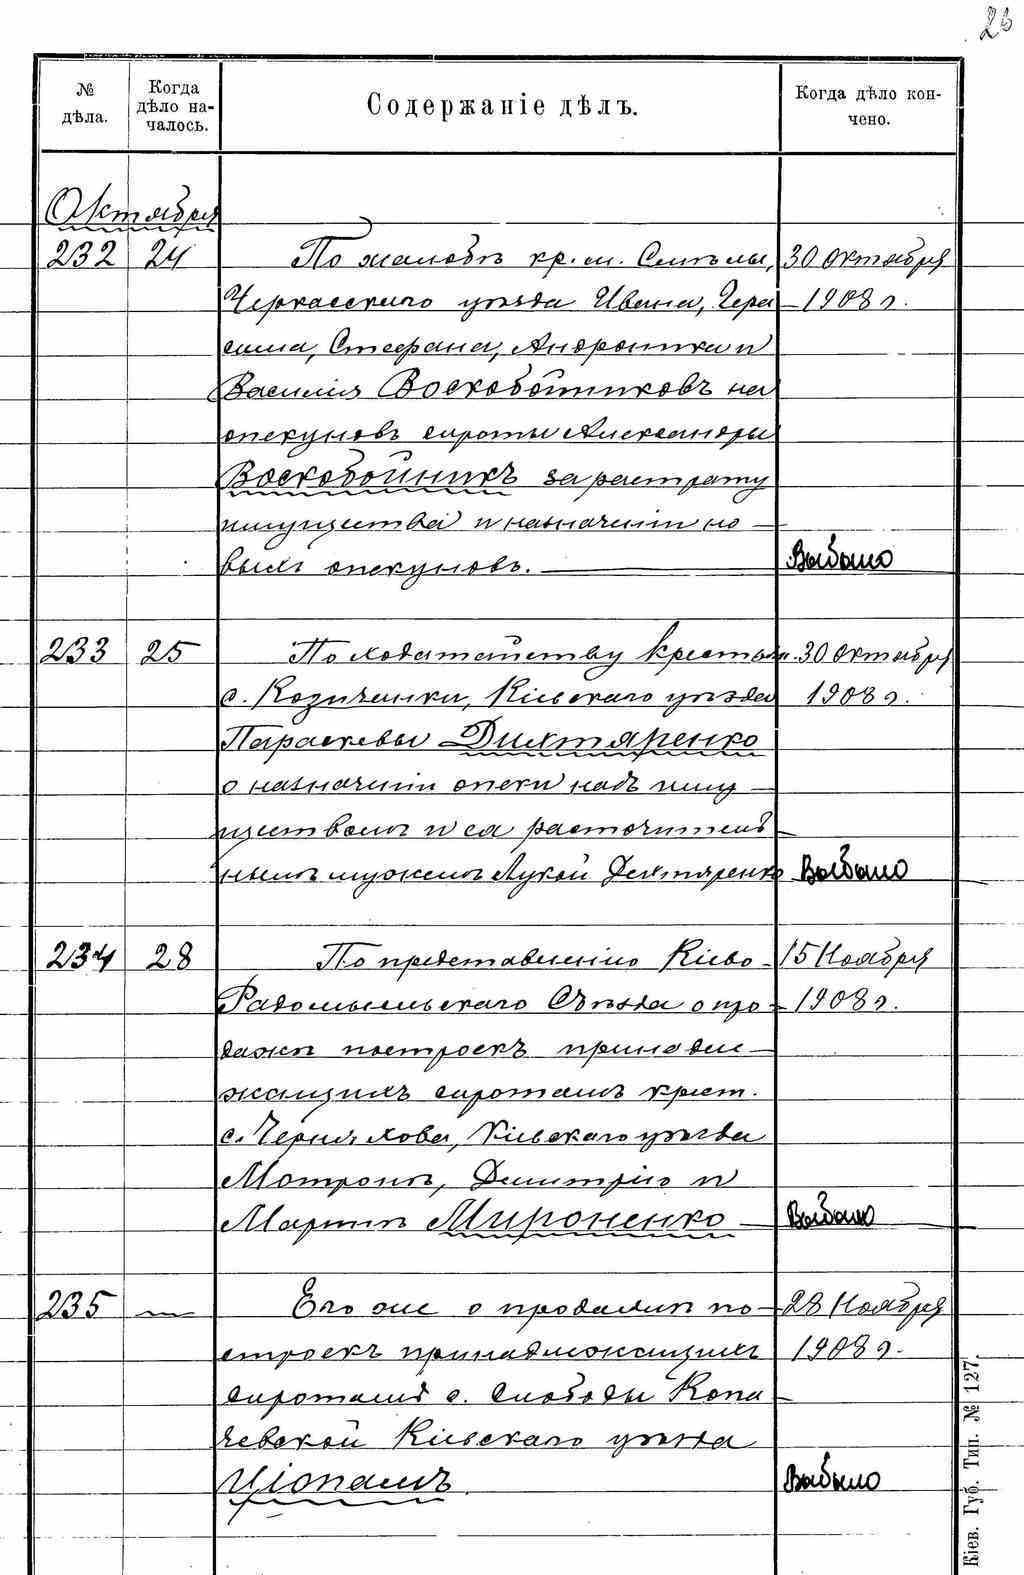 23
№ дѣла.
Когда дѣло на-чалось.
Содержаніе дѣлъ.
Когда дѣло кон-чено.
Октября
232 24 По жалобѣ кр. м. Смѣлы, 30 Октября
Черкасскаго уѣзда Ивана, Гера 1908 г.
сима, Стефана, Андроника и
Василія Воскобойниковъ на
опекуновъ сироты Александры
Воскобойникъ за растрату
имущества и назначеніи но
выхъ опекуновъ. Выбыло
233 25 По ходатайству крестьян. 30 Октября
с. Козичанки, Кіевскаго уѣзда 1908 г.
Параскевы Дихтяренко
о назначеніи опеки надъ иму
ществомъ и ея расточитель
нымъ мужемъ Лукой Дехтяренко Выбыло
234 28 По представленію Кіево- 15 Ноября
Радомысльскаго Съѣзда о про- 1908 г.
дажѣ построекъ принадле
жащихъ сиротамъ крест.
с. Черняхова, Кіевскаго уѣзда
Мотронѣ, Димитрію и
Марѣѣ Мироненко Выбыло
235 — Его же о продажѣ по- 28 Ноября
строекъ принадлежащихъ 1908 г.
сиротамъ с. Слободы Копа
чевской Кіевскаго уѣзда
Цюпамъ. Выбыло
Кіев. Губ. Тип. № 127.